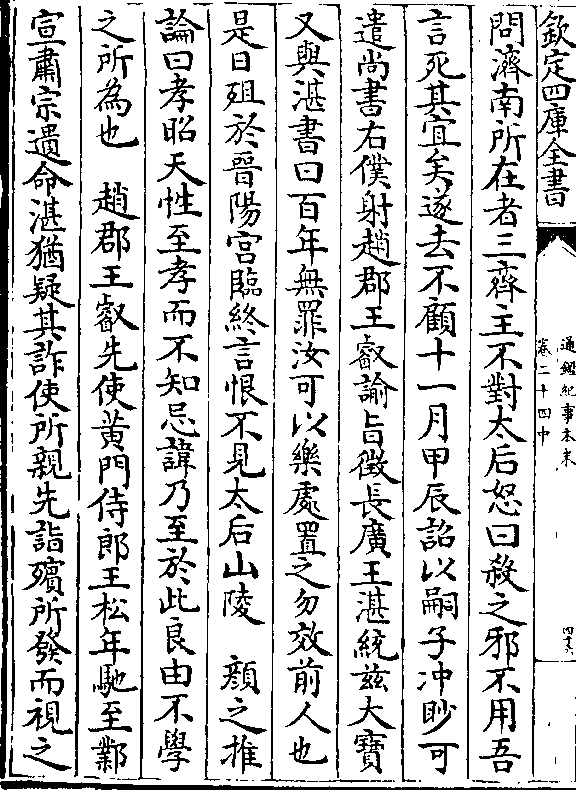 欽定四庫全書
通鑑紀事本末
卷二十四中
四十六
問濟南所在者三齊主不對太后怒曰殺之邪不用吾
言死其宜矣遂去不顧十一月甲辰詔以嗣子沖眇可
遣尚書右僕射趙郡王叡諭旨徵長廣王湛統兹大寶
又與湛書曰百年無罪汝可以樂處置之勿效前人也
是日殂於晉陽宫臨終言恨不見太后山陵　顔之推
論曰孝昭天性至孝而不知忌諱乃至於此良由不學
之所為也　趙郡王叡先使黄門侍郎王松年馳至鄴
宣肅宗遺命湛猶疑其詐使所親先詣殯所發而視之